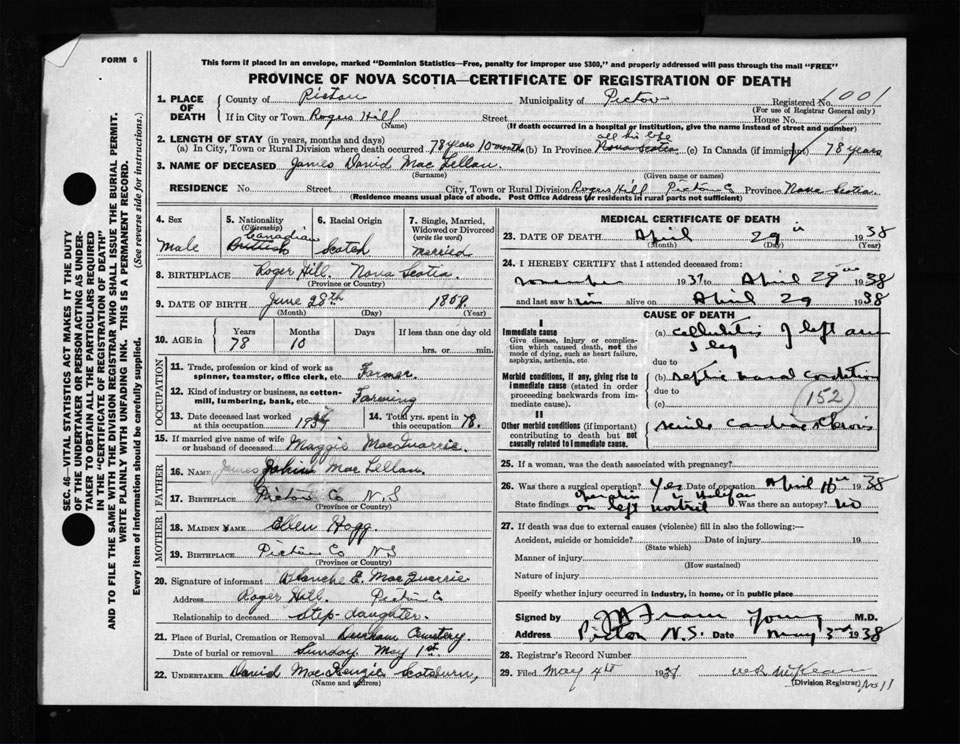 FORM 6
This form if placed in an envelope, marked "Dominion Statistics—Free, penalty for improper use $300," and properly addressed will pass through the mail "FREE"
PROVINCE OF NOVA SCOTIA—CERTIFICATE OF REGISTRATION OF DEATH
1. PLACE OF DEATH
County of Pictou Municipality of Pictou Registered No. 1001
(For use of Registrar General only)
If in City or Town Rogers Hill Street House No.
(Name) (If death occurred in a hospital or institution, give the name instead of street and number)
2. LENGTH OF STAY (in years, months and days) all his life
(a) In City, Town or Rural Division where death occurred 78 years 10 months (b) In Province Nova Scotia (c) In Canada (if immigrant) 78 years
3. NAME OF DECEASED James David MacLellan.
(Surname) (Given name or names)
RESIDENCE No. Street City, Town or Rural Division Rogers Hill Pictou Co Province Nova Scotia.
(Residence means usual place of abode. Post Office Address for residents in rural parts not sufficient)
4. Sex Male
5. Nationality (Citizenship) Canadian British
6. Racial Origin Scotch
7. Single, Married, Widowed or Divorced (write the word) Married
8. BIRTHPLACE Roger Hill. Nova Scotia.
(Province or Country)
9. DATE OF BIRTH June 28th
(Month) (Day) (Year)
10. AGE in Years 78 Months 10 Days If less than one day old hrs. or min.
OCCUPATION
11. Trade, profession or kind of work as spinner, teamster, office clerk, etc. Farmer.
12. Kind of industry or business, as cotton-mill, lumbering, bank, etc. Farming
13. Date deceased last worked at this occupation 1937
14. Total yrs. spent in this occupation 78.
15. If married give name of wife or husband of deceased Maggie MacQuarrie
FATHER
16. NAME James MacLellan.
17. BIRTHPLACE Pictou Co N.S
(Province or Country)
MOTHER
18. MAIDEN NAME Ellen Hogg
19. BIRTHPLACE Pictou Co NS
(Province or Country)
20. Signature of informant Blanche E. MacQuarrie
Address Roger Hill. Pictou Co
Relationship to deceased Step-daughter.
21. Place of Burial, Cremation or Removal Durham Cemetery.
Date of burial or removal Sunday May 1st
22. UNDERTAKER David MacKenzie Scotsburn,
(Name and address)
MEDICAL CERTIFICATE OF DEATH
23. DATE OF DEATH April 29th 1938
(Month) (Day) (Year)
24. I HEREBY CERTIFY that I attended deceased from:
November 1937 to April 29th 1938
and last saw him alive on April 29 1938
CAUSE OF DEATH
I
Immediate cause
Give disease, injury or complication which caused death, not the mode of dying, such as heart failure, asphyxia, asthenia, etc.
(a) cellulitis of left arm & leg
due to
Morbid conditions, if any, giving rise to immediate cause (stated in order proceeding backwards from immediate cause).
(b) septic nasal condition
due to
(c) 152
II
Other morbid conditions (if important) contributing to death but not causally related to immediate cause.
senile cardiac
25. If a woman, was the death associated with pregnancy?
26. Was there a surgical operation? Yes Date of operation April 1938
State findings operation in Halifax on left nostril Was there an autopsy? no
27. If death was due to external causes (violence) fill in also the following:—
Accident, suicide or homicide? Date of injury 19
(State which)
Manner of injury
(How sustained)
Nature of injury
Specify whether injury occurred in industry, in home, or in public place
Signed by Young M.D.
Address Pictou N.S. Date May 3rd 1938
28. Registrar's Record Number
29. Filed May 4th 1938
(Division Registrar) No 11
SEC. 46—VITAL STATISTICS ACT MAKES IT THE DUTY
OF THE UNDERTAKER OR PERSON ACTING AS UNDER-
TAKER TO OBTAIN ALL THE PARTICULARS REQUIRED
IN THE "CERTIFICATE OF REGISTRATION OF DEATH"
AND TO FILE THE SAME WITH THE DIVISION REGISTRAR WHO SHALL ISSUE THE BURIAL PERMIT.
WRITE PLAINLY WITH UNFADING INK. THIS IS A PERMANENT RECORD.
Every item of information should be carefully supplied. (See reverse side for instructions.)